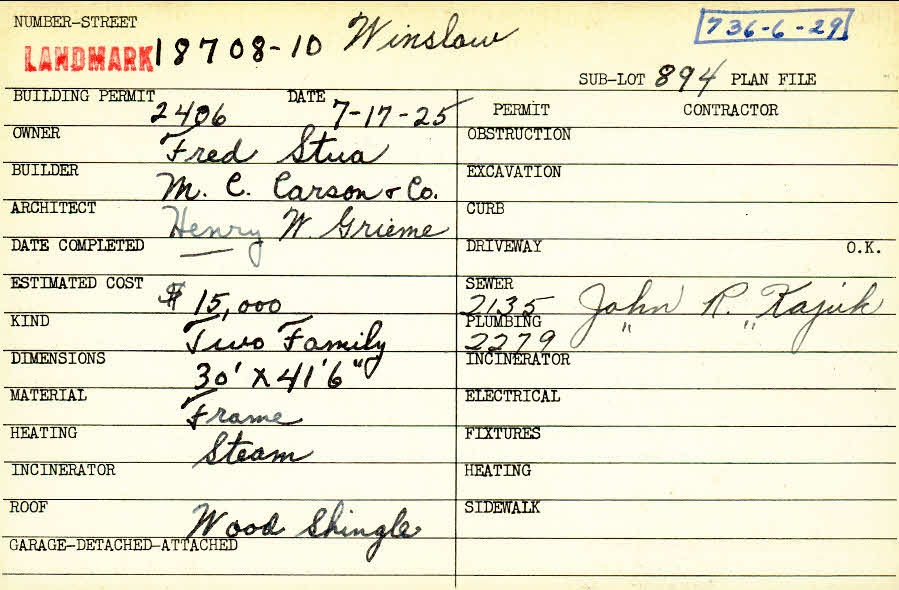 NUMBER-STREET
LANDMARK 18708-10 Winslow
736-6-29
SUB-LOT 894 PLAN FILE
BUILDING PERMIT 2406 DATE 7-17-25
OWNER Fred Stua
BUILDER M. C. Carson & Co.
ARCHITECT Henry W. Grieme
DATE COMPLETED —
ESTIMATED COST $15,000
KIND Two Family
DIMENSIONS 30' X 41'6"
MATERIAL Frame
HEATING Steam
INCINERATOR
ROOF Wood Shingle
GARAGE-DETACHED-ATTACHED
PERMIT CONTRACTOR
OBSTRUCTION
EXCAVATION
CURB
DRIVEWAY O.K.
SEWER 2135 John R. Kajuk
PLUMBING 2279 " "
INCINERATOR
ELECTRICAL
FIXTURES
HEATING
SIDEWALK